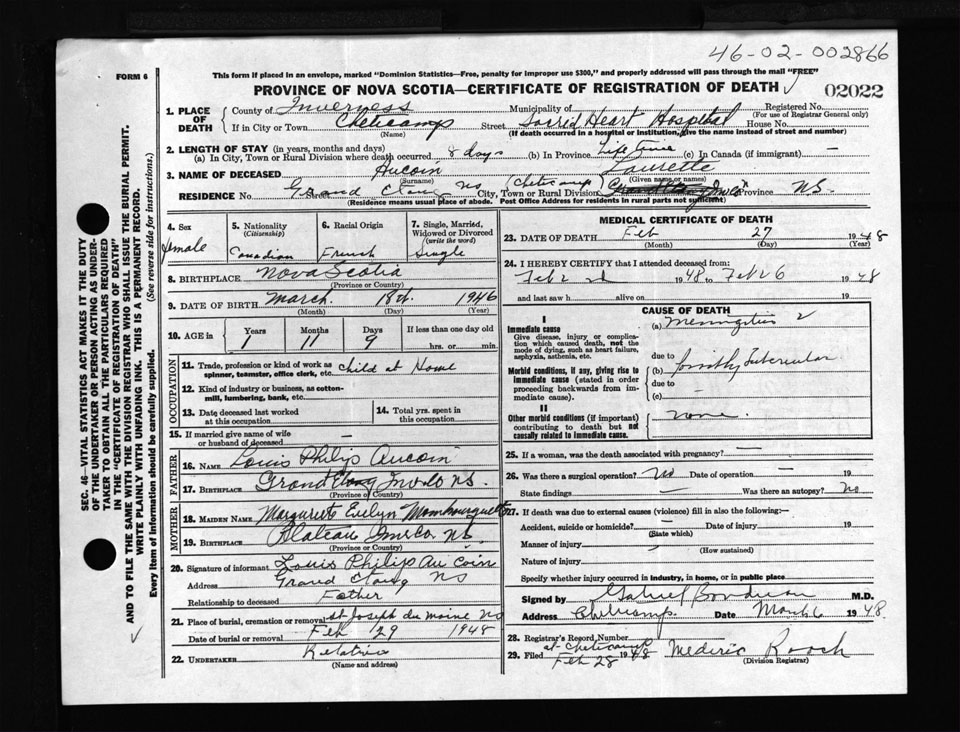 46-02-002866
FORM 6
This form if placed in an envelope, marked "Dominion Statistics—Free, penalty for improper use $300," and properly addressed will pass through the mail "FREE"
PROVINCE OF NOVA SCOTIA—CERTIFICATE OF REGISTRATION OF DEATH
02022
1. PLACE OF DEATH
County of Inverness Municipality of Registered No.
(For use of Registrar General only)
If in City or Town Cheticamp Street Sacrid Heart Hospital House No.
(Name) (If death occurred in a hospital or institution, give the name instead of street and number)
2. LENGTH OF STAY (in years, months and days)
(a) In City, Town or Rural Division where death occurred 8 days (b) In Province Life Time (c) In Canada (if immigrant) —
3. NAME OF DECEASED Aucoin Laurette
(Surname) (Given name or names)
RESIDENCE No. Street Grand Etang NS City, Town or Rural Division (Cheticamp) Province N.S.
(Residence means usual place of abode. Post Office Address for residents in rural parts not sufficient)
4. Sex female
5. Nationality (Citizenship) Canadian
6. Racial Origin French
7. Single, Married, Widowed or Divorced (write the word) Single
8. BIRTHPLACE Nova Scotia
(Province or Country)
9. DATE OF BIRTH March 18th. 1946
(Month) (Day) (Year)
10. AGE in Years 1 Months 11 Days 9 If less than one day old hrs. or min.
OCCUPATION
11. Trade, profession or kind of work as spinner, teamster, office clerk, etc. Child at Home
12. Kind of industry or business, as cotton-mill, lumbering, bank, etc.
13. Date deceased last worked at this occupation
14. Total yrs. spent in this occupation
15. If married give name of wife or husband of deceased —
FATHER
16. NAME Louis Philip Aucoin
17. BIRTHPLACE Grand Etang Inv Co NS.
(Province or Country)
MOTHER
18. MAIDEN NAME Margurete Evelyn Mombourquette
19. BIRTHPLACE Plateau Inv Co. NS.
(Province or Country)
20. Signature of informant Louis Philip Au coin
Address Grand Etang NS
Relationship to deceased Father
21. Place of burial, cremation or removal St Joseph du moine NS
Date of burial or removal Feb 29 1948
22. UNDERTAKER Relative
(Name and address)
MEDICAL CERTIFICATE OF DEATH
23. DATE OF DEATH Feb 27 1948
(Month) (Day) (Year)
24. I HEREBY CERTIFY that I attended deceased from:
Feb 2nd 1948 to Feb 26 1948
and last saw h alive on 19
CAUSE OF DEATH
I
Immediate cause
Give disease, injury or complication which caused death, not the mode of dying, such as heart failure, asphyxia, asthenia, etc.
(a) Meningitis
due to
Morbid conditions, if any, giving rise to immediate cause (stated in order proceeding backwards from immediate cause).
(b) possibly Tubercular
due to —
(c)
II
Other morbid conditions (if important) contributing to death but not causally related to immediate cause.
none.
25. If a woman, was the death associated with pregnancy? —
26. Was there a surgical operation? no Date of operation — 19
State findings — Was there an autopsy? no
27. If death was due to external causes (violence) fill in also the following:—
Accident, suicide or homicide? — Date of injury 19
(State which)
Manner of injury
(How sustained)
Nature of injury
Specify whether injury occurred in industry, in home, or in public place
Signed by Gabriel Boudreau M.D.
Address Cheticamp. Date March 6 1948
28. Registrar's Record Number
29. Filed at Cheticamp Feb 28 1948 Mederic Roach
(Division Registrar)
SEC. 46—VITAL STATISTICS ACT MAKES IT THE DUTY
OF THE UNDERTAKER OR PERSON ACTING AS UNDER-
TAKER TO OBTAIN ALL THE PARTICULARS REQUIRED
IN THE "CERTIFICATE OF REGISTRATION OF DEATH"
AND TO FILE THE SAME WITH THE DIVISION REGISTRAR WHO SHALL ISSUE THE BURIAL PERMIT.
WRITE PLAINLY WITH UNFADING INK. THIS IS A PERMANENT RECORD.
Every item of Information should be carefully supplied. (See reverse side for instructions.)